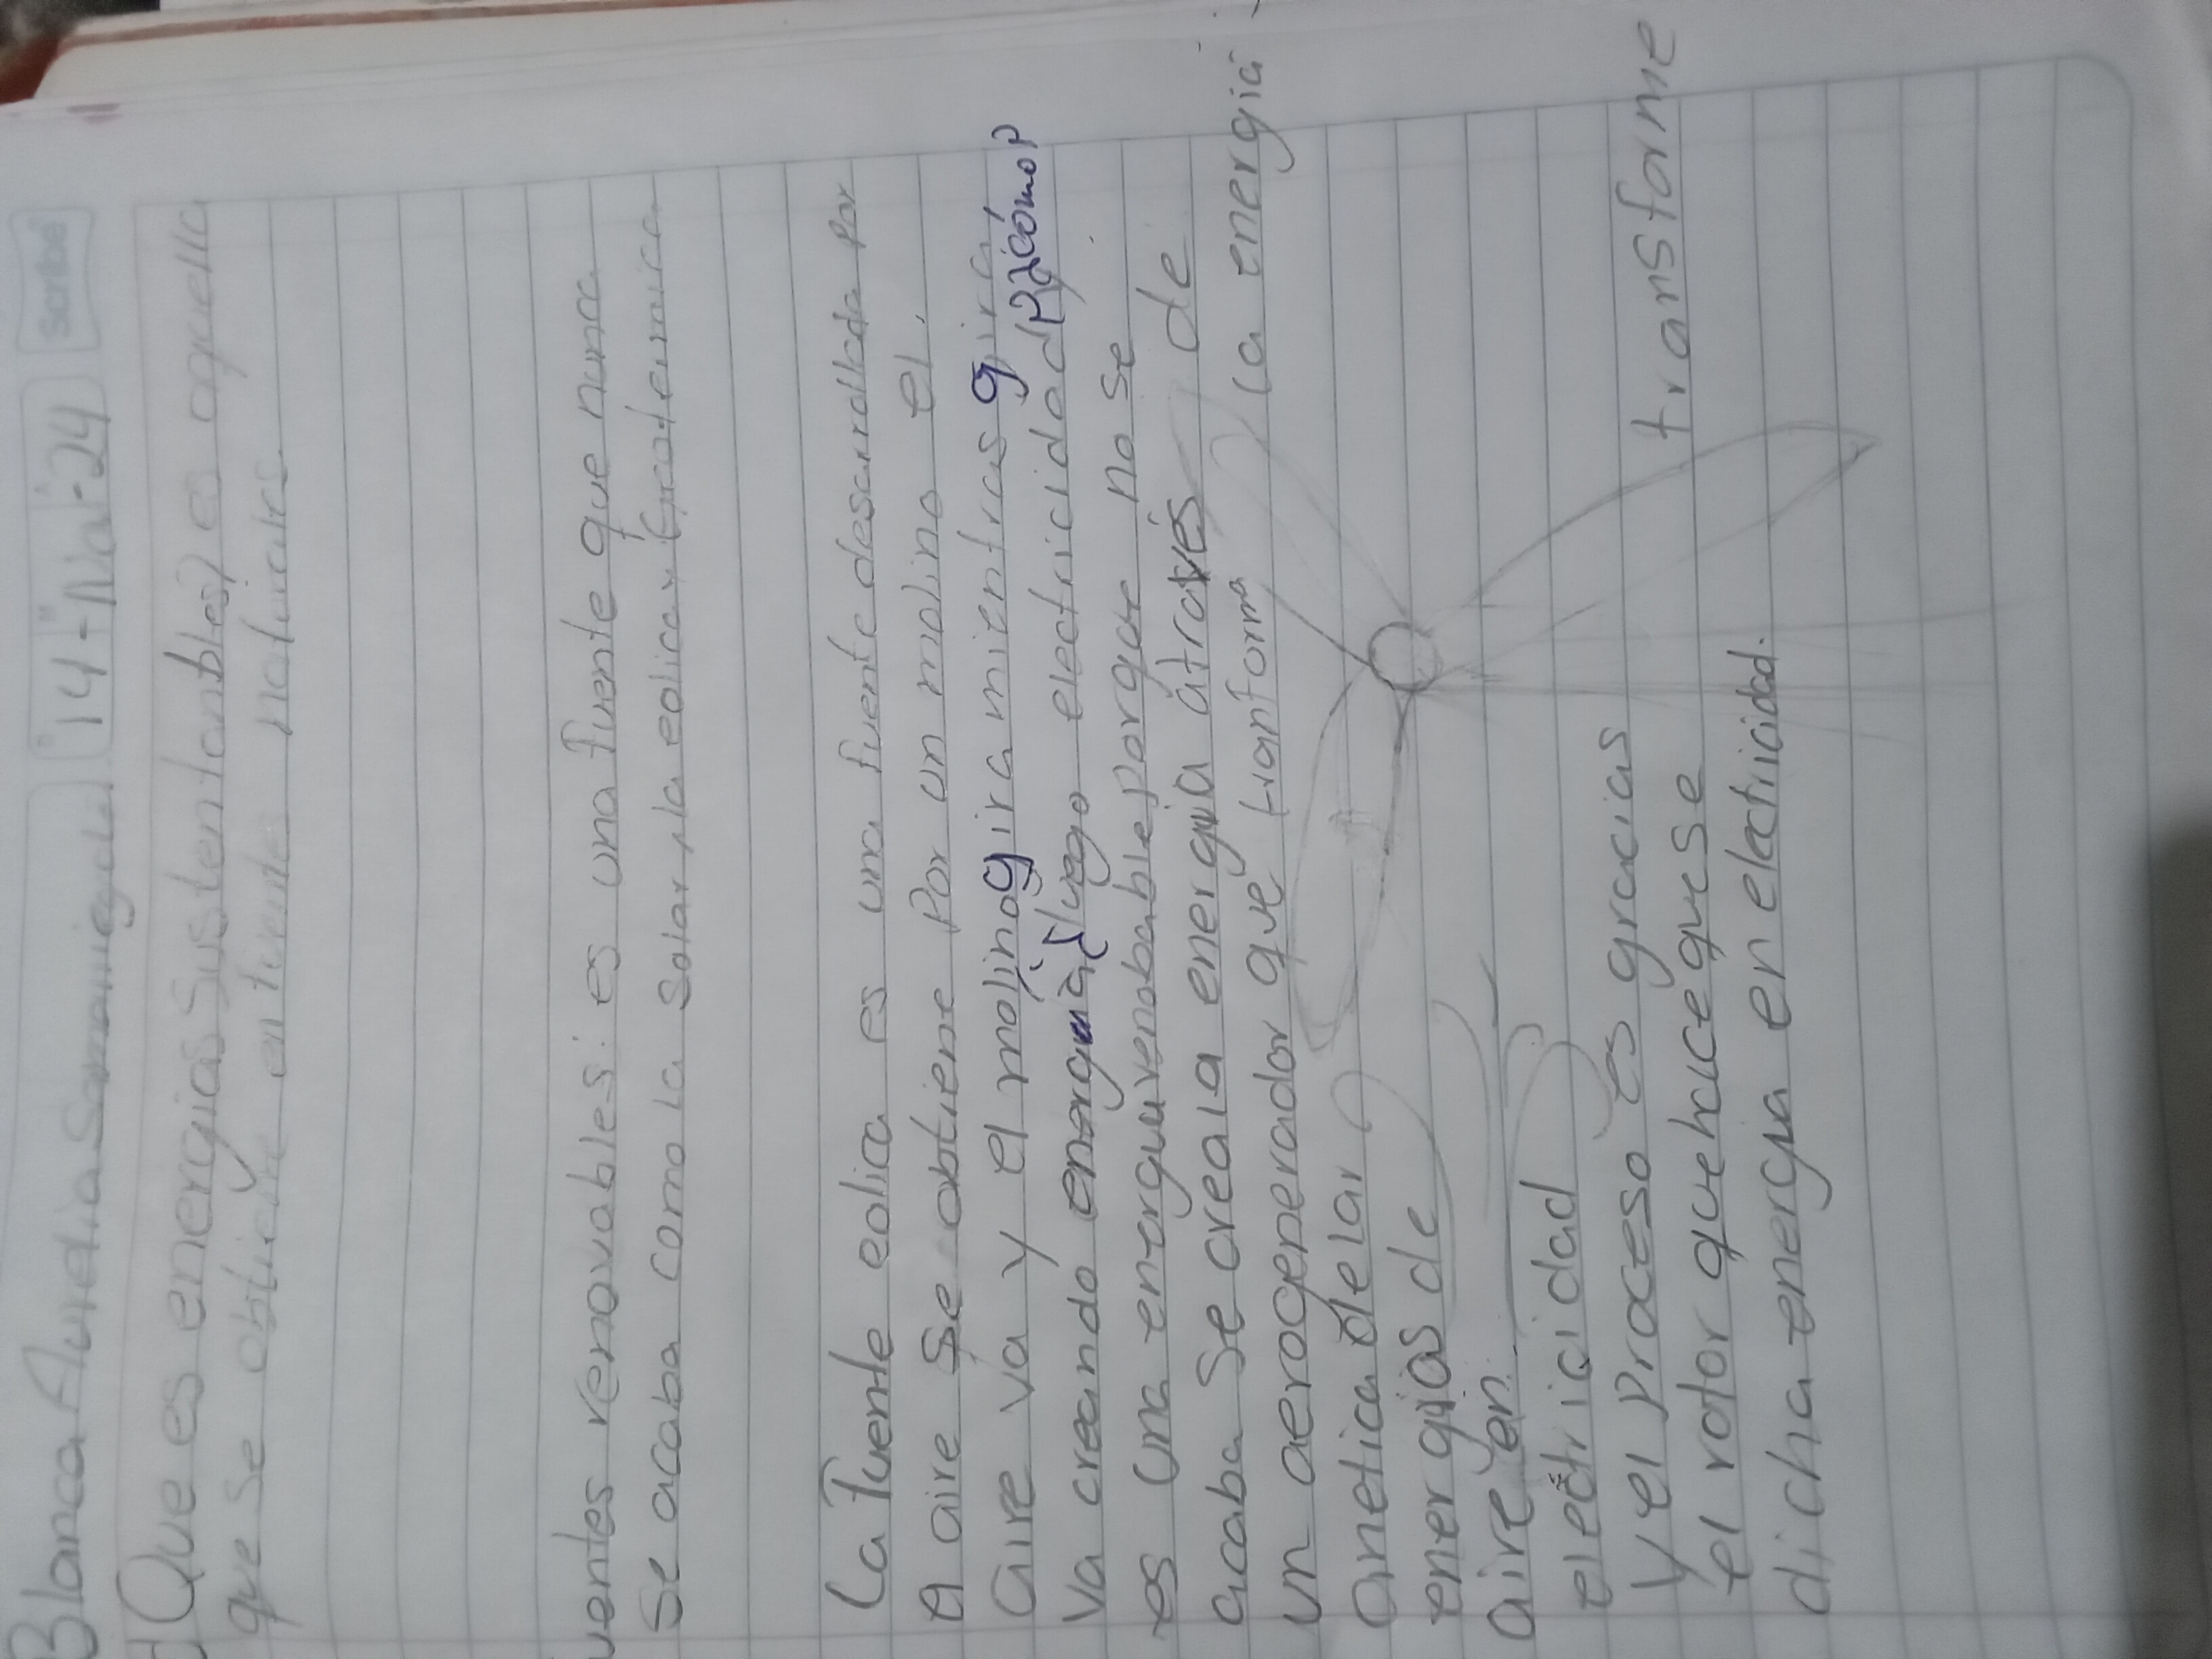 Blanca Aurelia Samaniego 14-Nov-24 scribe
Que es energias sustentables) es aquella
que se obtiene en fuentes naturales
uentes renovables: es una fuente que nunca
se acaba como la solar, la eolica y Geotermica
La fuente eolica es una fuente desarrollada por
el aire se obtiene Por un molino el.
aire va y el molino gira mientras gira
va creando energia luego electricidad
es una energia renobable porque no se
acaba se crea la energia através de
un aerogenerador que tranforma la energia
cinetica delar
energias de
aire en
electricidad
y el proceso es gracias
el rotor que hace que se transforme
dicha energia en electricidad.